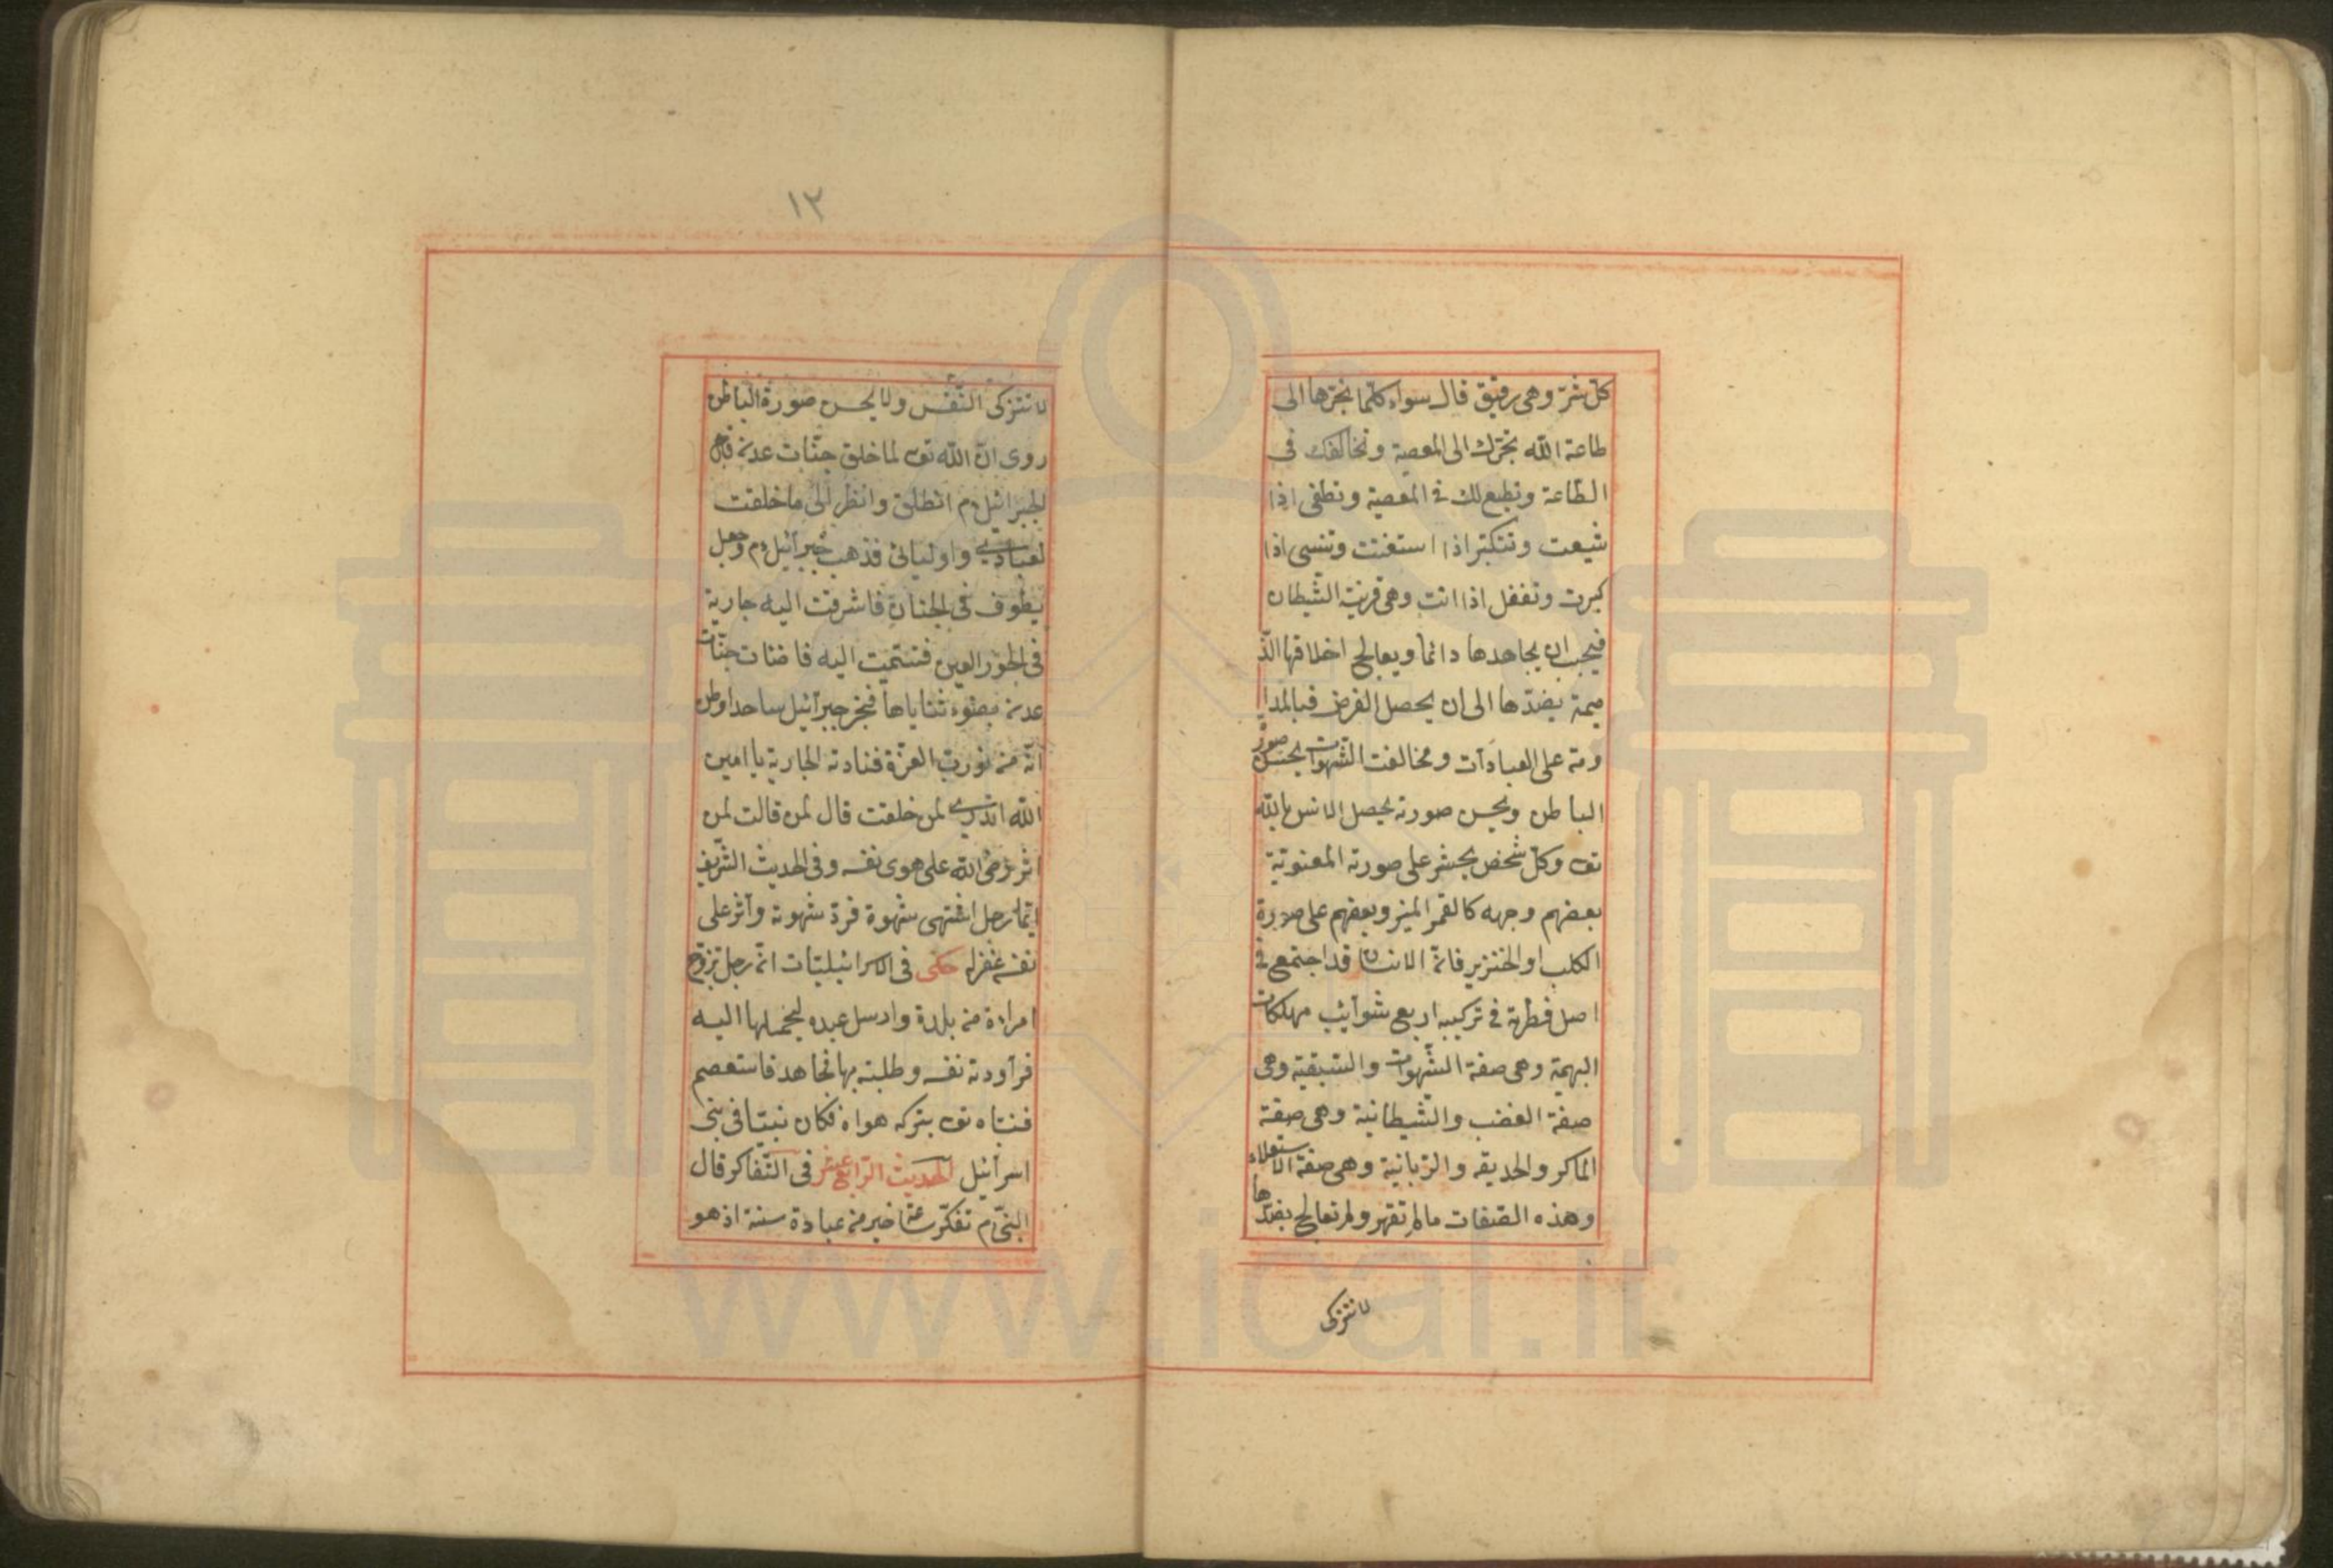 كلّ شرّ وهى رفيق قال سواء كلّما تجرّها الى
طاعة الله تجرّك الى المعصية وتخالفك فى
الطّاعة وتطيع لك فى المعصية وتطغى اذا
شبعت وتتكبّر اذا استغنت وتنسى اذا
كبرت وتغفل اذا انت وهى قرينة الشّيطان
فيجب ان يجاهدها دائما ويعالج اخلاقها الذّ
ميمة بضدّها الى ان يحصل الغرض فبالمدا
ومة على العبادات ومخالفت الشّهوات يحسن صورة
الباطن وبحسن صورته يحصل الانس بالله
تعـ وكلّ شخص يحشر على صورته المعنويّة
بعضهم وجهه كالقمر المنير وبعضهم على صورة
الكلب او الخنزير فانّ الانسان قد اجتمع فى
اصل فطرته فى تركيبه اربع شوآئب مهلكات
البهمية وهى صفة الشّهوات والسّبقية وهى
صفة الغضب والشّيطانية وهى صفة
الماكر والحديقه والرّبانية وهى صفة الاستعلاء
وهذه الصّفات مالم تقهر ولم تعالج بضدّها
لا تتزكى
١٢
لا تتزكى النّفس ولا يحسن صورة الباطن
روى انّ الله تعـ لما خلق جنّات عدن قال
لجبرائيل ءم انطلق وانظر الى ما خلقت
لعبادى واوليائى فذهب جبرآئيل ءم وجعل
يطوف فى الجنان فاشرفت اليه جارية
فى الحور العين فتبسّمت اليه فاضئات جنّات
عدن بضوء ثناياها فخرّ جبرآئيل ساجدا وظن
انّه من نور ربّ العزّة فنادته الجارية يا امين
الله اتدرى لمن خلقت قال لمن قالت لمن
اثر رضى الله على هوى نفسه وفى الحديث الشّريف
ايّما رجل اشتهى شهوة فردّ شهوته وآثر على
نفسه غفر له حكى فى الاسرائيليّات انّ رجل تزوّج
امراءة من بلدة وارسل عبده ليحملها اليه
فرآودته نفسه وطلبته بها فجاهد فاستعصم
فنبّاه تعـ بتركه هواه فكان نبيّا فى بنى
اسرآئيل الحديث الرّابع عشر فى التّفاكر قال
النبىّ ءم تفكّر ساعة خير من عبادة سنة اذ هو
www.ical.ir